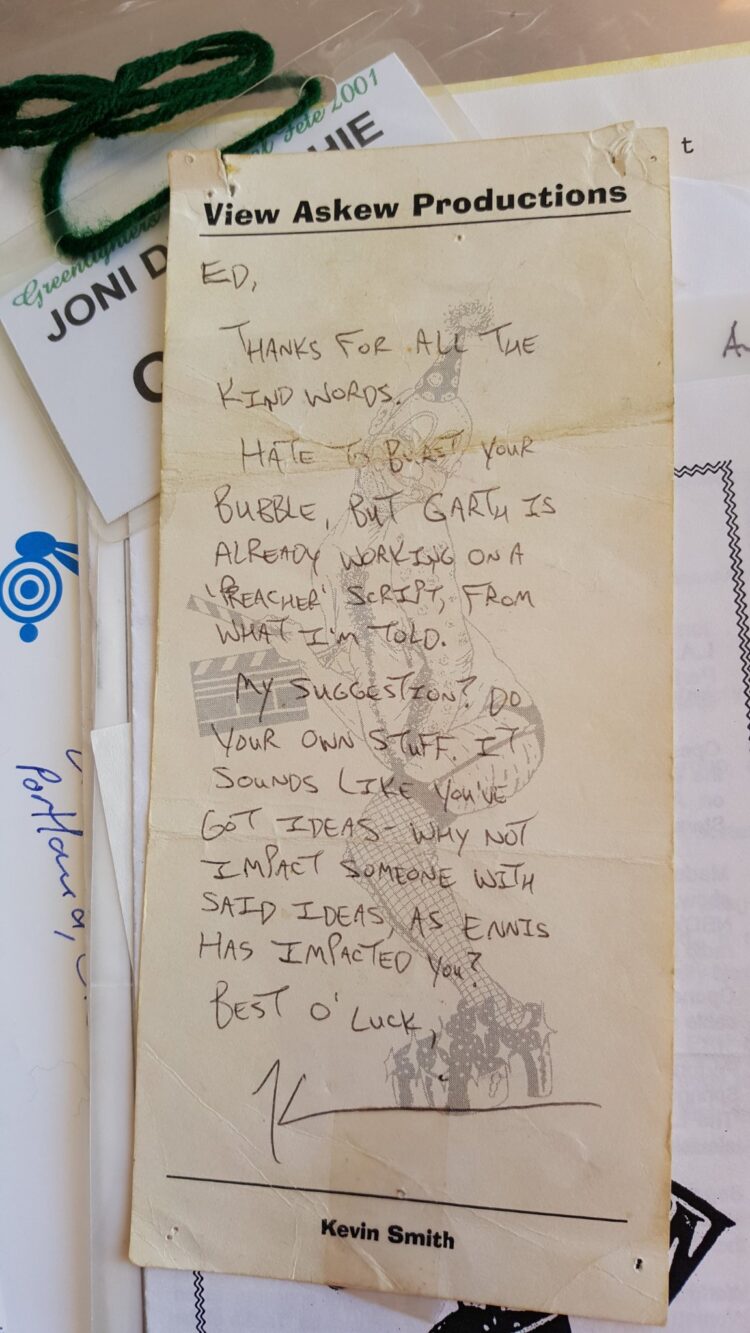 Fête 2001
HIE
Greenfighters
JONI D
t
View Askew Productions
ED,
THANKS FOR ALL THE
KIND WORDS.
HATE TO BURST YOUR
BUBBLE, BUT GARTH IS
ALREADY WORKING ON A
'PREACHER' SCRIPT, FROM
WHAT I'M TOLD.
MY SUGGESTION? DO
YOUR OWN STUFF. IT
SOUNDS LIKE YOU'VE
GOT IDEAS- WHY NOT
IMPACT SOMEONE WITH
SAID IDEAS, AS ENNIS
HAS IMPACTED YOU?
BEST O' LUCK,
K
Kevin Smith
Portland,